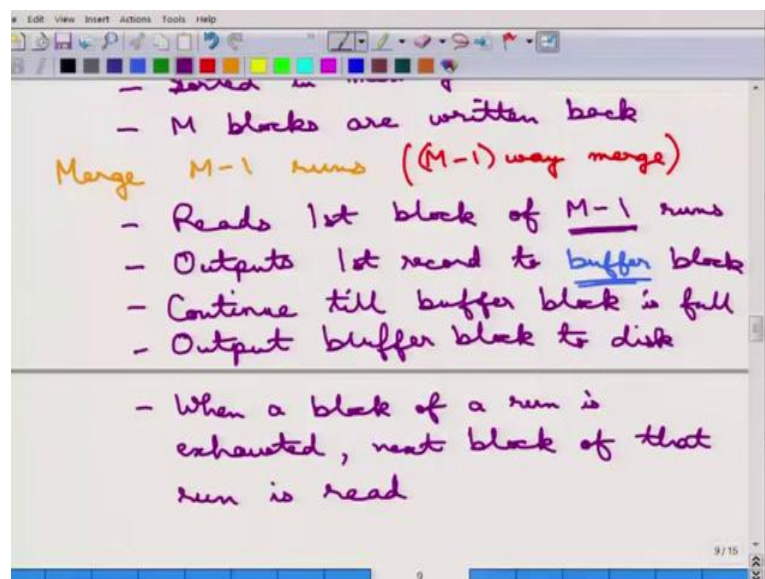 Edit View Insert Actions Tools Help
- Sorted in
- M blocks are written back
Merge M-1 runs ((M-1) way merge)
- Reads 1st block of M-1 runs
- Outputs 1st record to buffer block
- Continue till buffer block is full
- Output bluffer block to disk
- When a block of a run is
exhausted, next block of that
run is read
9/15
9